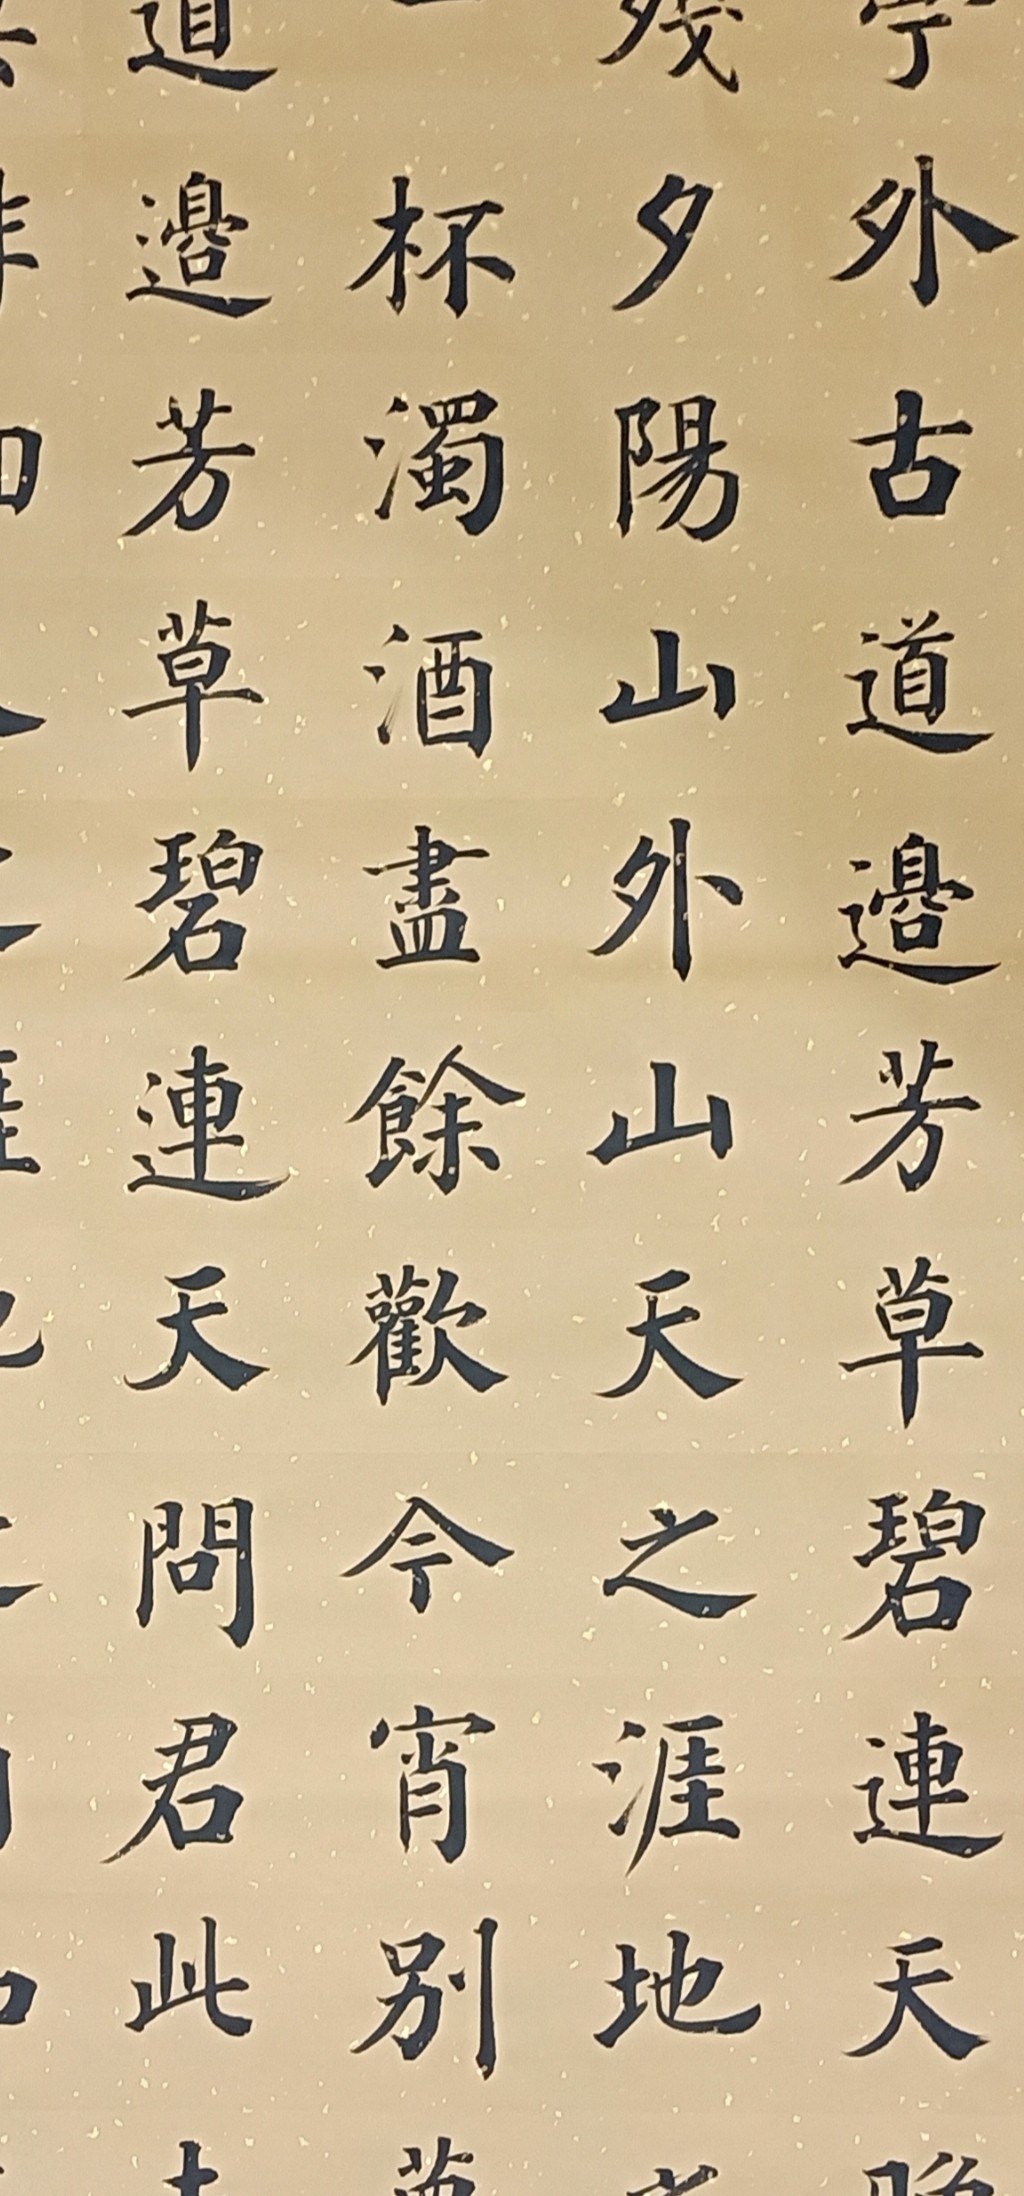 亭外古道邊芳草碧連天晚
殘夕陽山外山天之涯地
一杯濁酒盡餘歡今宵別夢
道邊芳草碧連天問君此去